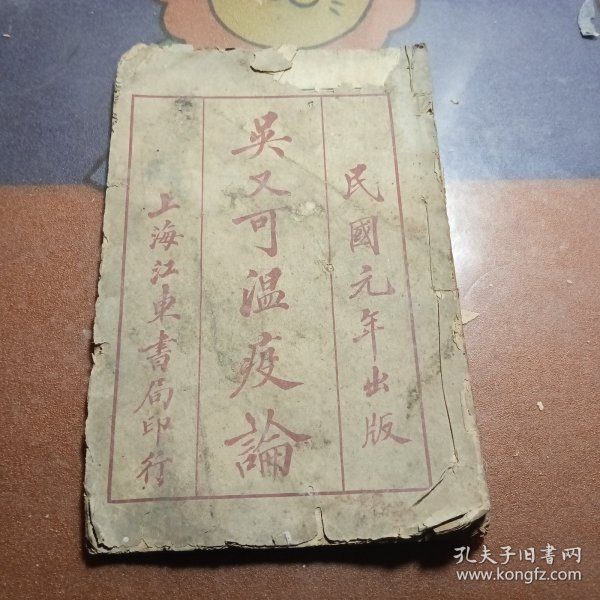 民國元年出版
吳又可温疫論
上海江東書局印行
孔夫子旧書网
www.kongfz.com